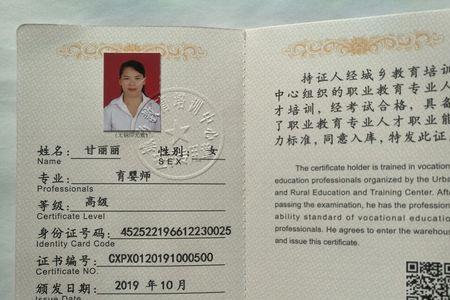 (无钢印无效)
姓名: 甘丽丽 性别: 女
Name SEX
专业: 育婴师
Professionals
等级: 高级
Certificate Level
身份证号码: 452522196612230025
Identity Card Code
证书编号: CXPX0120191000500
Certificate NO.
颁发日期: 2019 年 10 月
Issue Date
持证人经城乡教育培训
中心组织的职业教育专业人
才培训，经考试合格，具备
了职业教育专业人才职业能
力标准，同意入库，特发此证
The certificate holder is trained in vocational
education professionals organized by the Urban
and Rural Education and Training Center. After
passing the examination, he has the professional
ability standard of vocational education
professionals. He agrees to enter the warehouse
and issue this certificate.